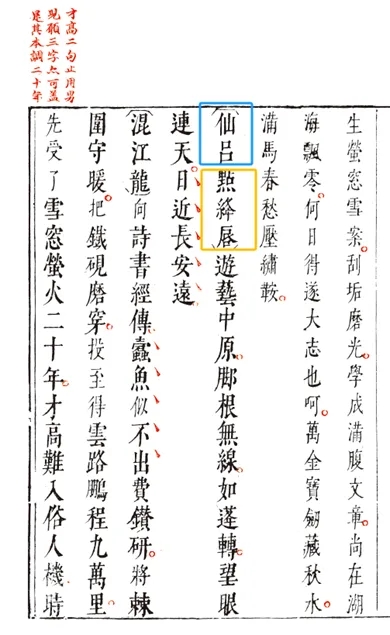 才高二句止用男
現三字可
是其本調二十年
生螢窓雪案。刮垢磨光。學成滿腹文章。尚在湖
海飄零。何日得遂大志也呵。萬金寶劒藏秋水。
滿馬春愁壓繡鞍。
〔仙呂點絳唇〕遊藝中原。脚根無線。如蓬轉。望眼
連天。日近長安遠
〔混江龍向詩書經傳。蠹魚似不出費鑽研。將棘
圍守暖。把鐵硯磨穿。投至得雲路鵬程九萬里。
先受了雪窓螢火二十年。才高難入俗人機。時